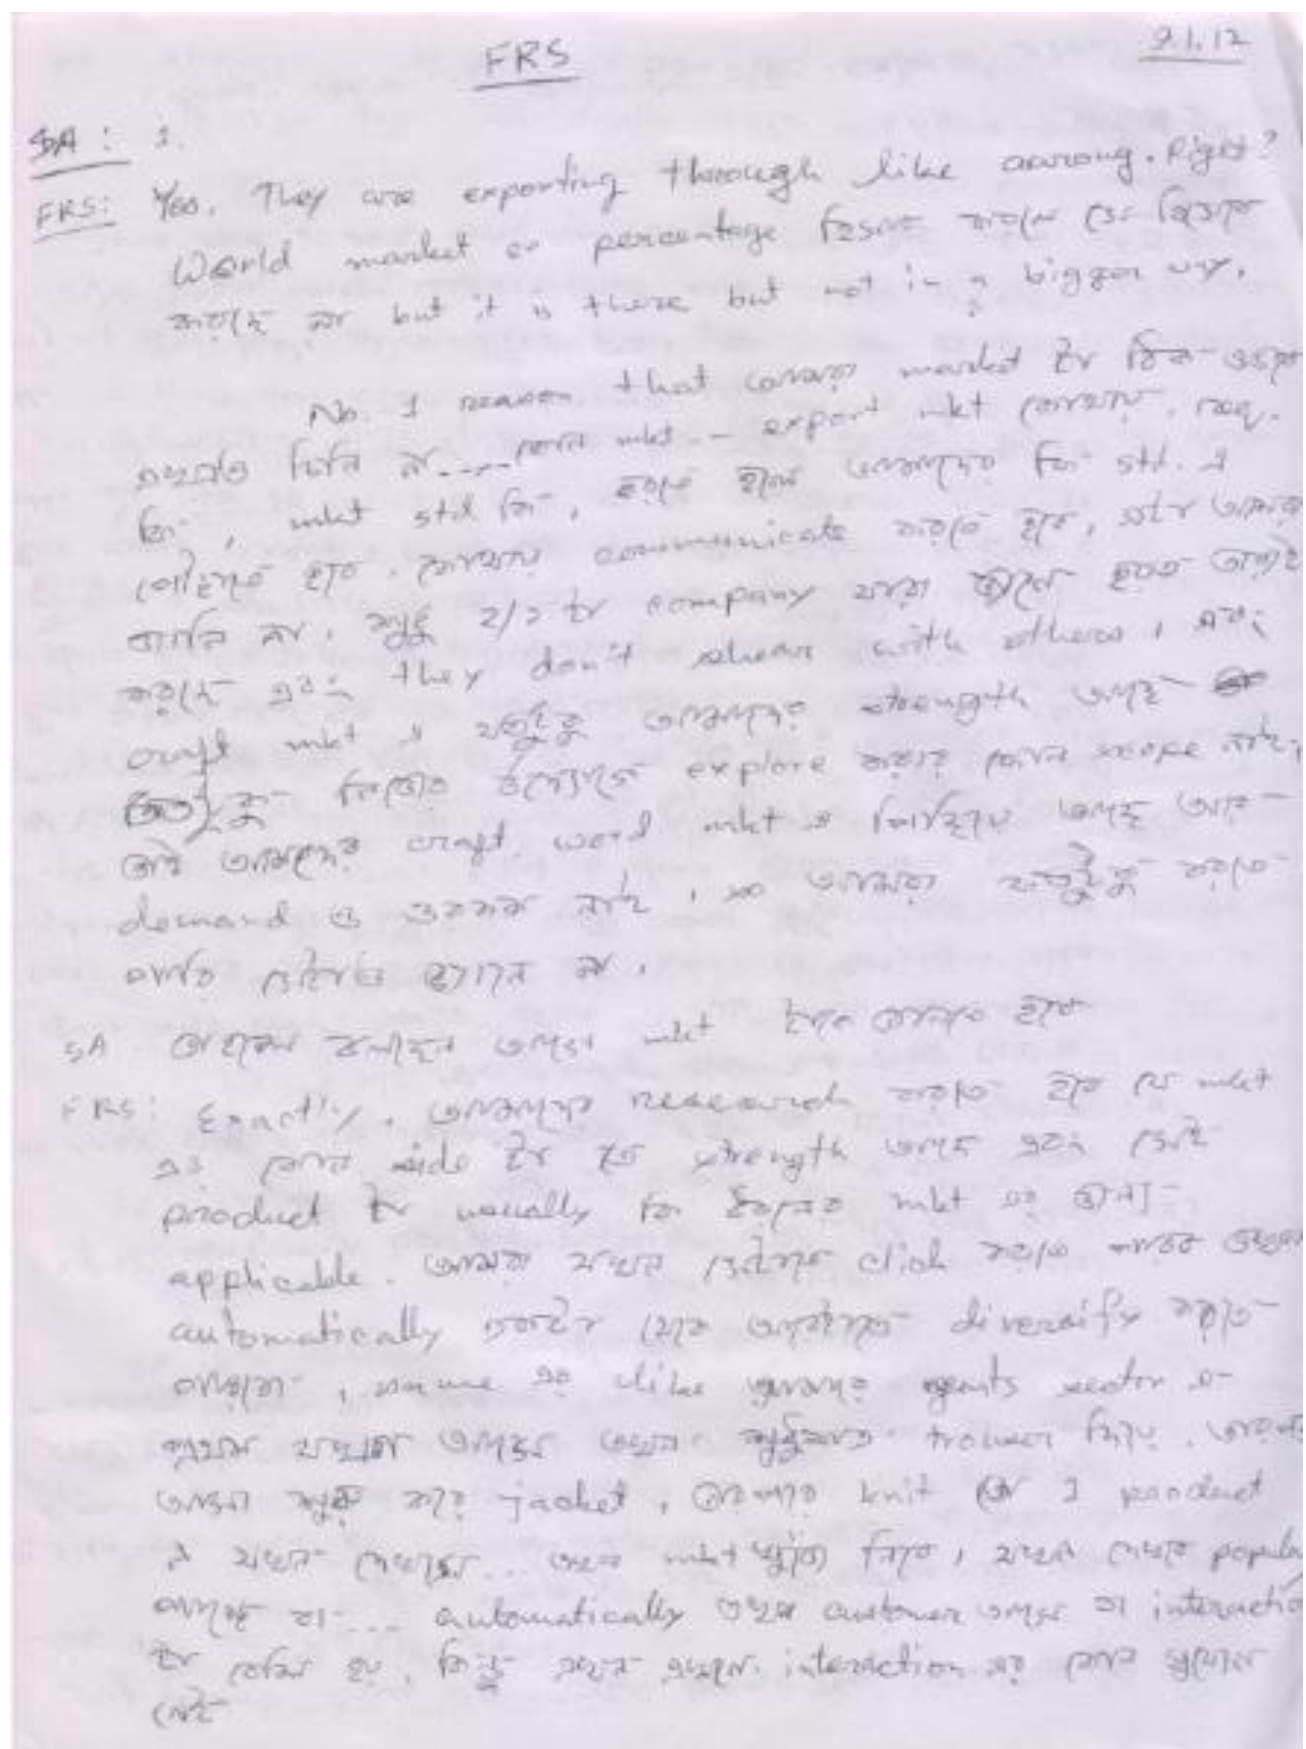 FRS
9.1.12
SA : 1.
FRS: Yes. They are exporting through like aarong. Right?
World market এ percentage হিসাবে করলে তো হিসাবে
করছে না but it is there but not in a bigger way.
No. 1 reason that আমরা market টা ঠিক মতো
এখনও চিনি না.... কোন mkt -- export mkt কোথায়, req.
কি, mkt std কি, করতে হলে আমাদের কি std. এ
পৌঁছাতে হবে, কোথায় communicate করতে হবে, সেটা আমরা
জানি না। শুধু ২/১ টা company যারা জানে হয়ত তারাই
করছে এবং they don't shear with others, এবং
craft mkt এ যতটুকু আমাদের strength আছে
ততটুকু নিজের উদ্যোগে explore করার কোন scope নাই,
তাই আমাদের craft word mkt এ পিছিয়ে আছে আর
demand ও তেমন নাই, so আমরা যতটুকু করতে
পারি সেটাও হচ্ছে না।
SA তাহলে বলছেন আগে mkt টাকে জানতে হবে
FRS: Exactly. আমাদের research করতে হবে যে mkt
এর কোন side টা তে strength আছে এবং সেই
product টা usually কি ধরনের mkt এর জন্য
applicable. আমরা যখন সেটাতে click করতে পারব তখন
automatically একটা থেকে আরেকটাতে diversify করতে
পারবো, same এর like আমার gents sector এ
প্রথম যখন আসে তখন শুধুমাত্র trouser ছিল, তারপর
আমরা শুরু করি jacket, তারপর knit 1 product
এ যখন দেখছে... তখন mkt খুঁজে নিবে, যখন দেখবে popular
পাচ্ছে বা .... automatically তখন customer আসে বা interaction
টা বেশি হয়, কিন্তু যখন এখানে interaction এর কোন সুযোগ
নেই